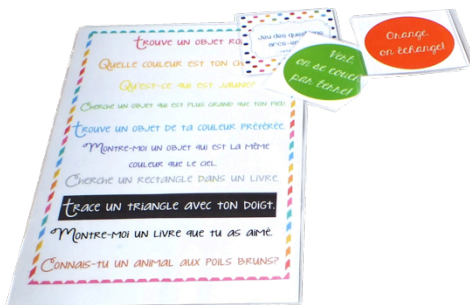 Trouve un objet ro
Quelle couleur est ton ch
Qu'est-ce qui est jaune?
Cherche un objet qui est plus grand que ton pied
Trouve un objet de ta couleur préférée.
Montre-moi un objet qui est la même
couleur que le ciel.
Cherche un rectangle dans un livre.
Trace un triangle avec ton doigt.
Montre-moi un livre que tu as aimé.
Connais-tu un animal aux poils bruns?
Jeu des questions
arc-en-
Vert,
on se couche
par terre!
Orange,
on échange!